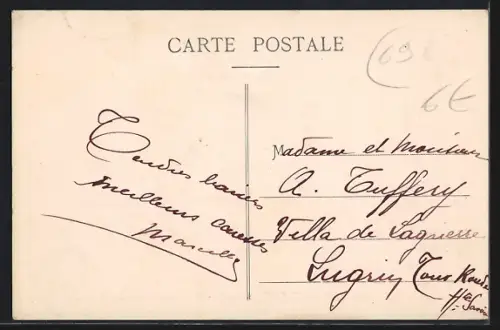 CARTE POSTALE
(69
6€
Tendres baisers
meilleures caresses
Marcelle
Madame et Monsieur
A. Tuffery
Villa de
Lugrin Tour Ronde
Hte Savoie